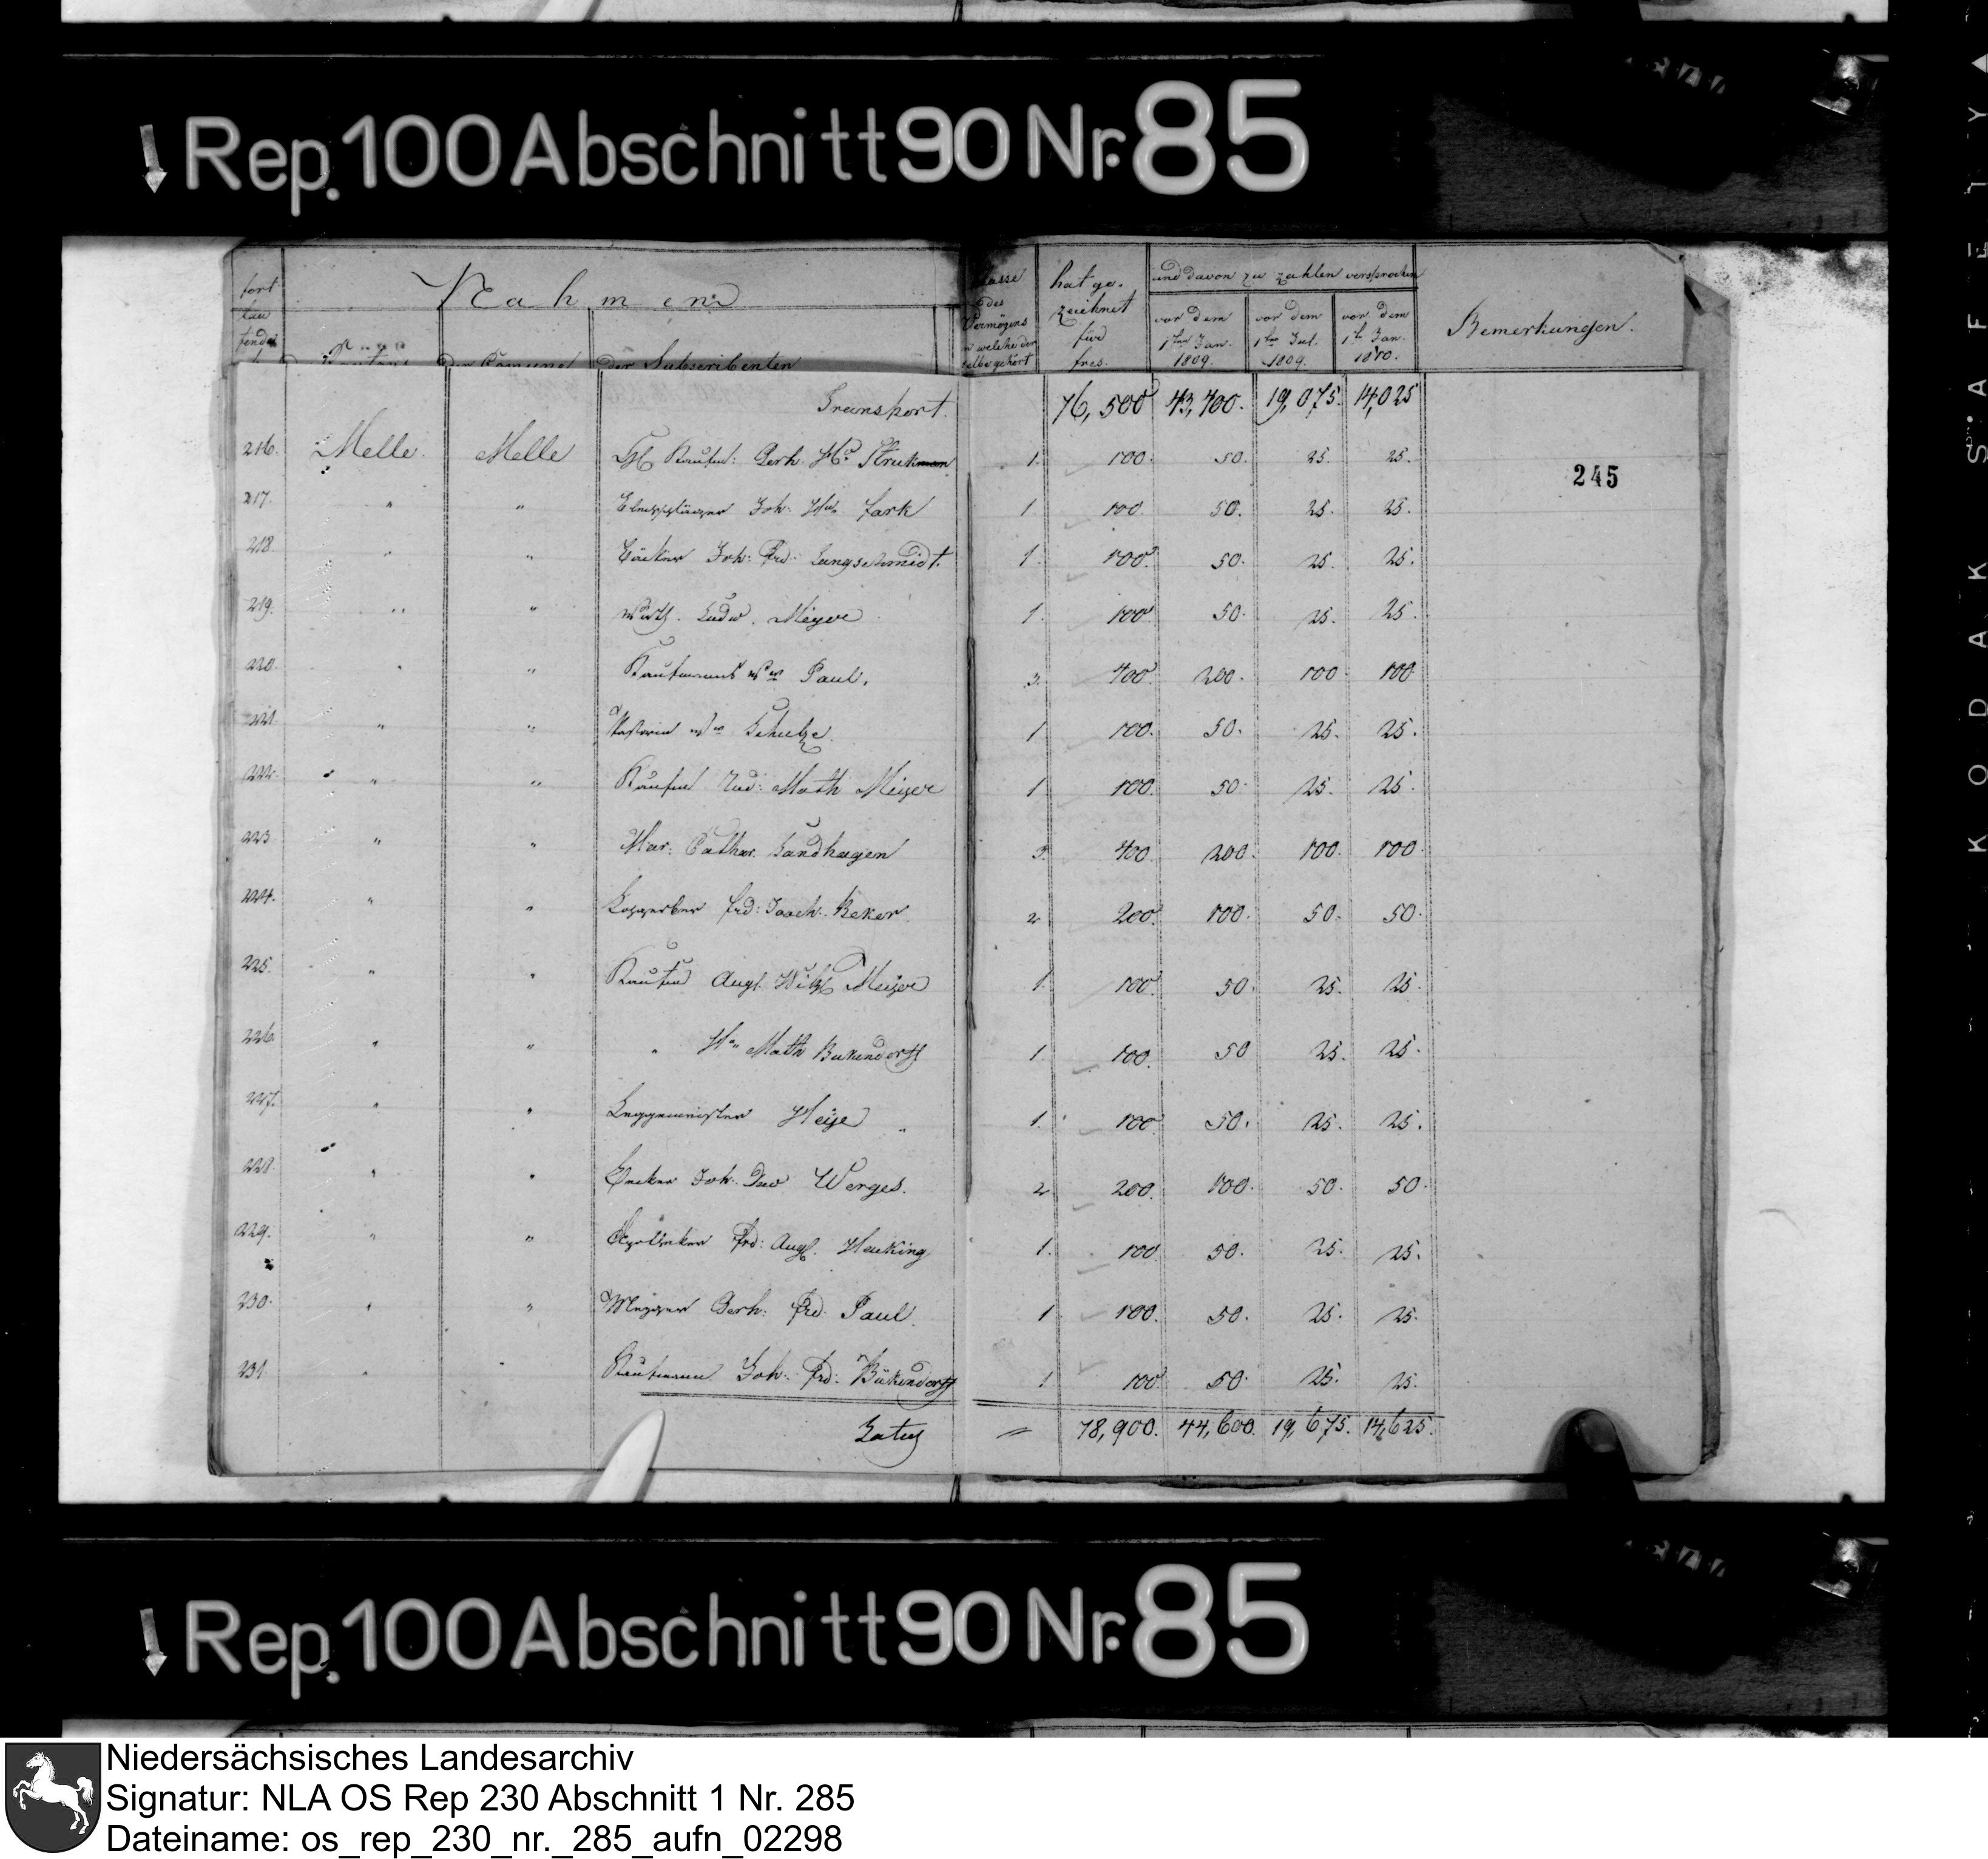 Rep. 100 Abschnitt 90 Nr. 85
fort lau fende
Nahmen
der Comune
der Subscribenten
Classe des Vermögens in welche derselbe gehört
hat gezeichnet für frcs.
und davon zu zahlen versprochen
vor dem 1ten Jan. 1809.
vor dem 1ten Jul. 1809.
vor dem 1t Jan. 1810.
Bemerkungen.
Transport. 76,500 43,400. 19,075. 14,025
216. Melle. Melle Kaufm: Gerh. Hr. Strukman 1. 100. 50. 25. 25.
245
217. " " Joh. Hn. Fark 1. 100. 50. 25. 25.
218. " " Bäcker Joh: Frd: Langschmidt. 1. 100. 50. 25. 25.
219. " " Wirth. Ludw. Meyer 1. 100. 50. 25. 25.
220. " " Kaufmanns Ww Paul. 3. 400. 200. 100. 100
221. " " Pastorin Ww Schulze. 1 100. 50. 25. 25.
222. " " Kaufm Rud: Math Meyer 1 100. 50. 25. 25.
223. " " Mar: Cathar. Sandhagen 3. 400. 200. 100. 100.
224. " " Lohgerber Frd: Joach: Beker. 2 200. 100. 50. 50.
225. " " Kaufm Aug. Wilh Meyer 1. 100. 50. 25. 25.
226. " " " Hn Math Bukendorff 1. 100. 50 25. 25.
227. " " Leggemeister Heye 1. 100. 50. 25. 25.
228. " " Joh. Dav Werges. 2 200. 100. 50. 50.
229. " " Apotheker Frd: Aug. Heuking 1. 100 50. 25. 25.
230. " " Gerh: Frd. Paul. 1 100. 50. 25. 25.
231. " " Kaufmann Joh: Frd: Bükendorff 1 100. 50. 25. 25.
Latus 78,900. 44,600. 19,675. 14,625.
Rep. 100 Abschnitt 90 Nr. 85
KODAK SAFETY
Niedersächsisches Landesarchiv
Signatur: NLA OS Rep 230 Abschnitt 1 Nr. 285
Dateiname: os_rep_230_nr._285_aufn_02298